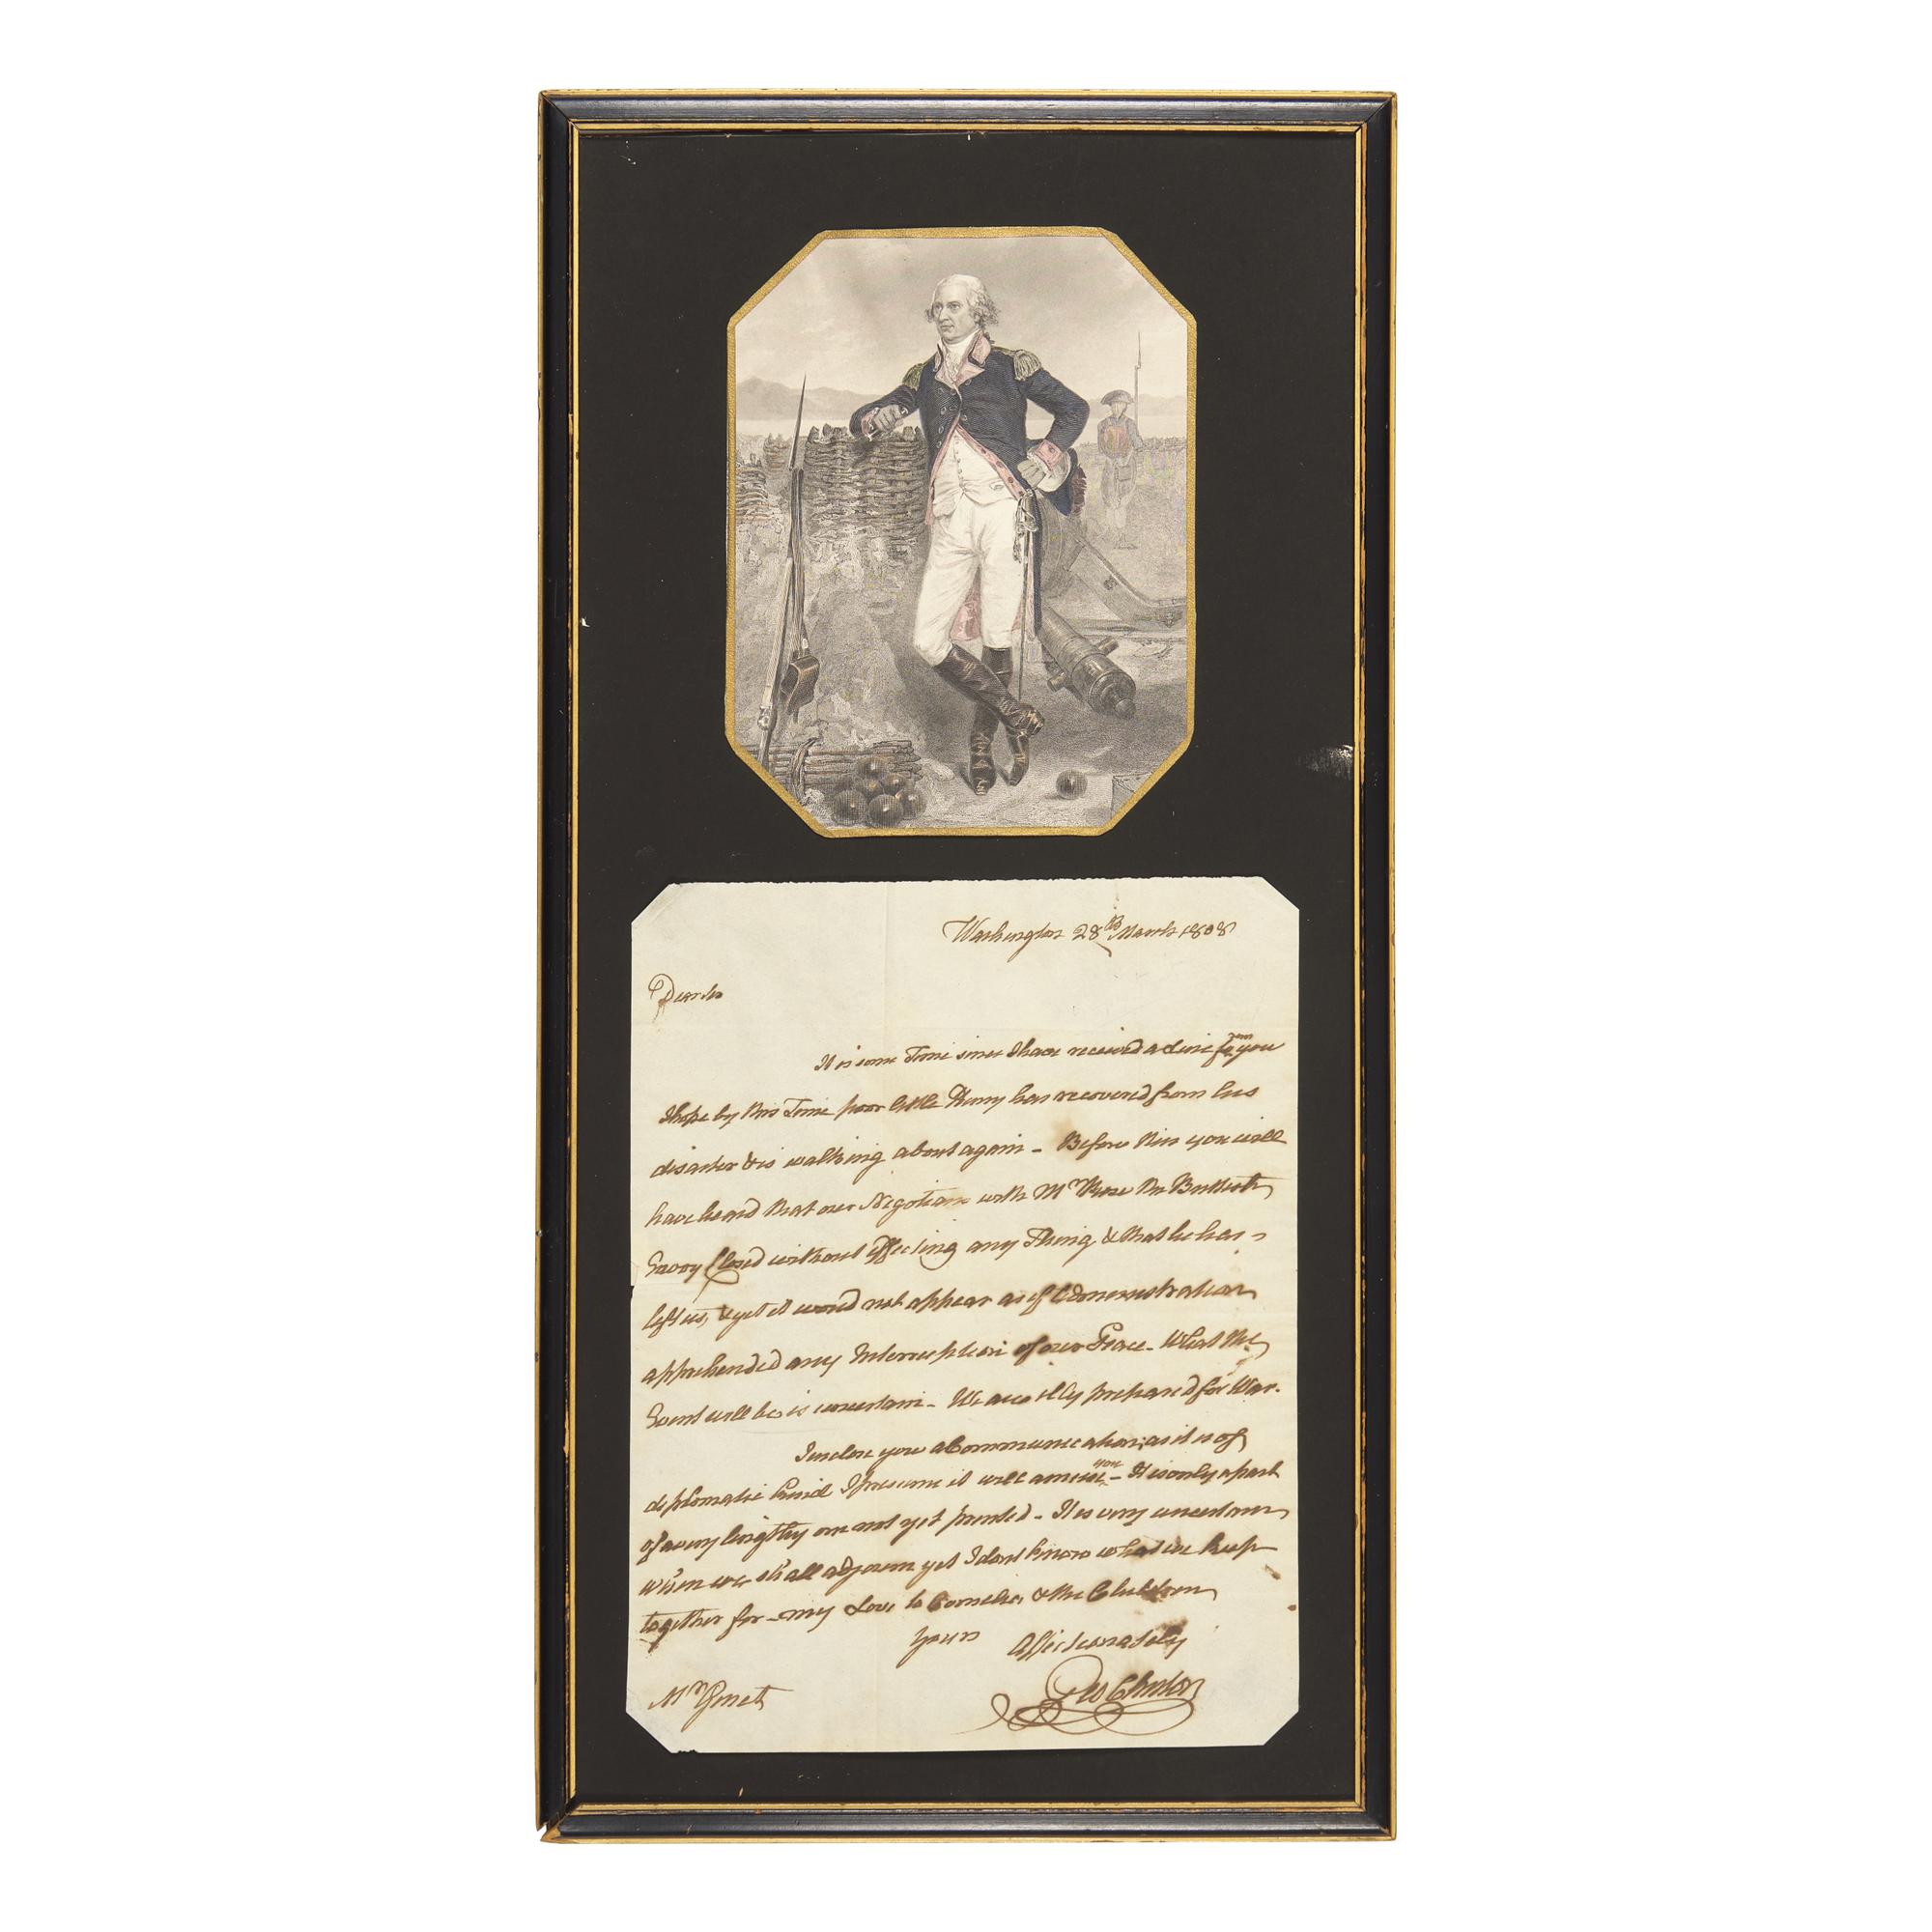 Washington 28th March 1808
Dear Sir
It is some Time since I have received a line from you
I hope by this Time poor little Henry has recovered from his
disaster & is walking about again - Before this you will
have heard that our Negotians with Mr Rose the British
Envoy Closed without effecting any Thing & that he has
left us, & yet it would not appear as if Administration
apprehended any Interruption of our Peace - What the
Event will be is uncertain - We are illy prepared for War.
Inclose you a Communication, as it is of
diplomatic kind I presume it will amuse you - It is only a part
of a very lengthy one not yet printed - It is very uncertain
when we shall adjourn yet I dont know what we keep
together for - my Love to Cornelia & the Children
Yours Affectionately
Geo Clinton
Mr Genet